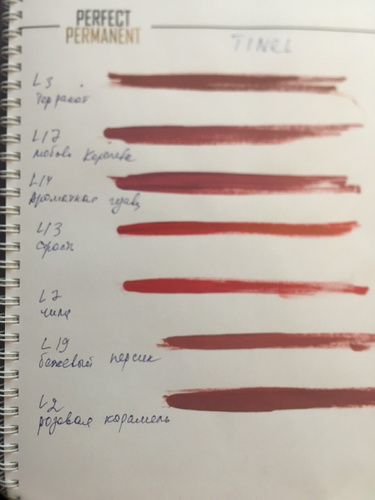 PERFECT
PERMANENT
TINEL
L3
Терракот
L17
любовь Королева
L14
Ароматная
L13
страсть
L7
чили
L19
бежевый персик
L2
розовая карамель